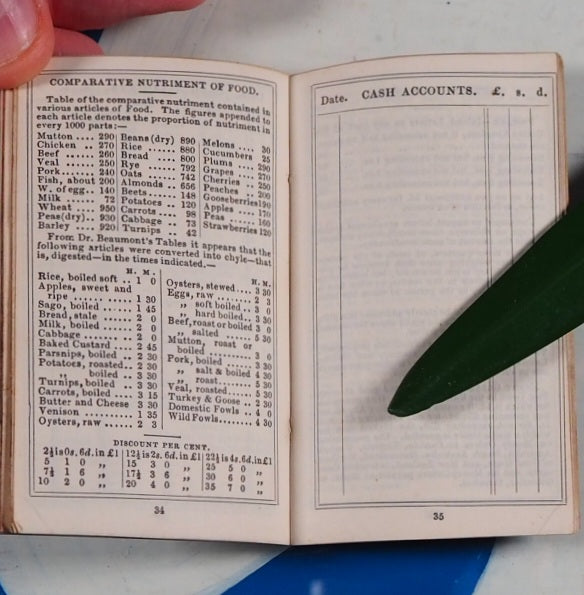 COMPARATIVE NUTRIMENT OF FOOD.
Table of the comparative nutriment contained in
various articles of Food. The figures appended to
each article denotes the proportion of nutriment in
every 1000 parts:—
Mutton .... 290
Chicken .. 270
Beef ...... 260
Veal ...... 250
Pork ...... 240
Fish, about 200
W. of egg.. 140
Milk ...... 72
Wheat .... 950
Peas(dry).. 930
Barley .... 920
Beans (dry) 890
Rice ...... 880
Bread .... 800
Rye ...... 792
Oats ...... 742
Almonds .. 656
Beets...... 148
Potatoes .. 120
Carrots.... 98
Cabbage .. 73
Turnips .. 42
Melons .... 30
Cucumbers 25
Plums .... 290
Grapes .... 270
Cherries .. 250
Peaches .. 200
Gooseberries190
Apples .... 170
Peas ...... 160
Strawberries 120
From Dr. Beaumont's Tables it appears that the
following articles were converted into chyle—that
is, digested—in the times indicated.—
H. M.
Rice, boiled soft .. 1 0
Apples, sweet and
ripe ........ 1 30
Sago, boiled .... 1 45
Bread, stale .... 2 0
Milk, boiled .... 2 0
Cabbage ........ 2 0
Baked Custard.... 2 45
Parsnips, boiled .. 2 30
Potatoes, roasted.. 2 30
„ boiled.... 3 30
Turnips, boiled .. 3 30
Carrots, boiled .. 3 15
Butter and Cheese 3 30
Venison ........ 1 35
Oysters, raw...... 2 3
H. M.
Oysters, stewed.... 3 30
Eggs, raw ........ 2 3
„ soft boiled.. 3 0
„ hard boiled.. 3 30
Beef, roast or boiled 3 0
„ salted ...... 5 30
Mutton, roast or
boiled ........ 3 0
Pork, boiled...... 3 30
„ salt & boiled 4 30
„ roast........ 5 30
Veal, roasted...... 5 30
Turkey & Goose .. 2 30
Domestic Fowls .. 4 0
Wild Fowls...... 4 30
DISCOUNT PER CENT.
2½ is 0s. 6d. in £1
5 1 0 „
7½ 1 6 „
10 2 0 „
12½ is 2s. 6d. in £1
15 3 0 „
17½ 3 6 „
20 4 0 „
22½ is 4s. 6d. in £1
25 5 0 „
30 6 0 „
35 7 0 „
34
Date. CASH ACCOUNTS. £. s. d.
35